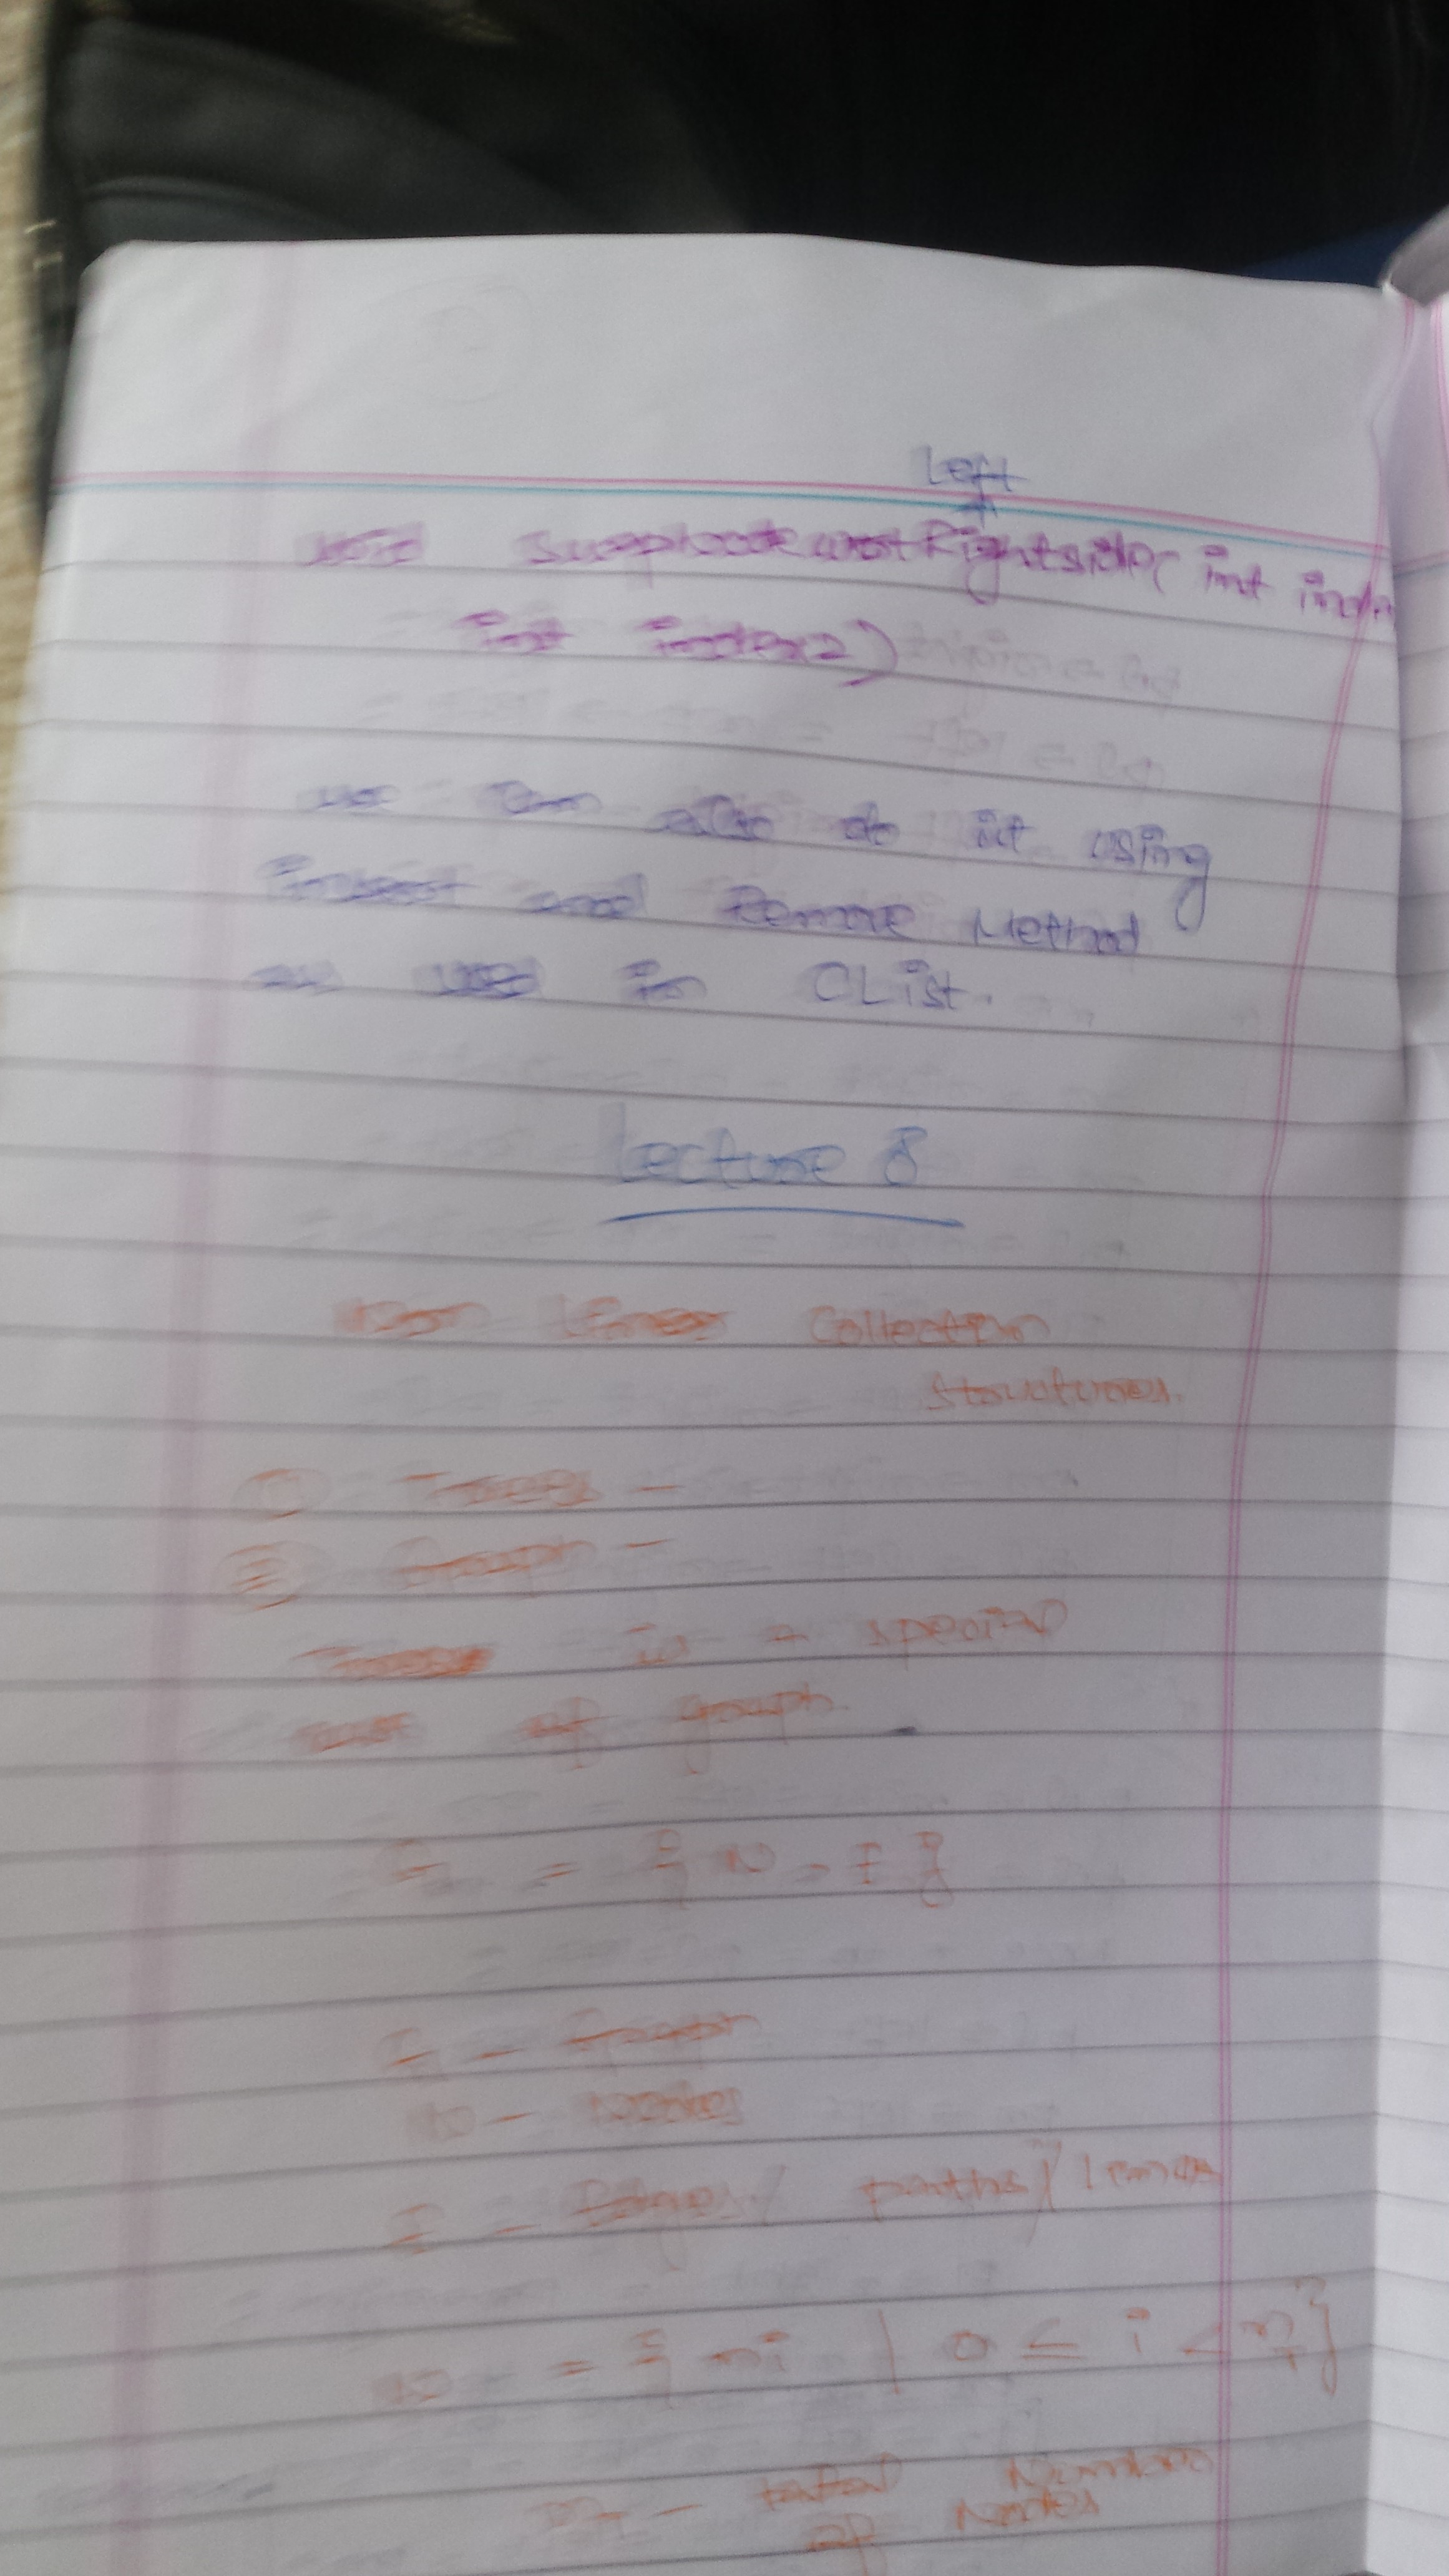 Left
void swapNodewrtRightside( int index
int index2)
we can also do it using
Insert and Remove Method
as used in CList.
Lecture 8
Non linear Collection
structures.
① Trees -
② Graph -
Trees is a special
case of graph.
G = { N, E }
G - Graph
N - Nodes
E - Edges/ paths/
N = { ni | 0 ≤ i <
- total Number
of Nodes